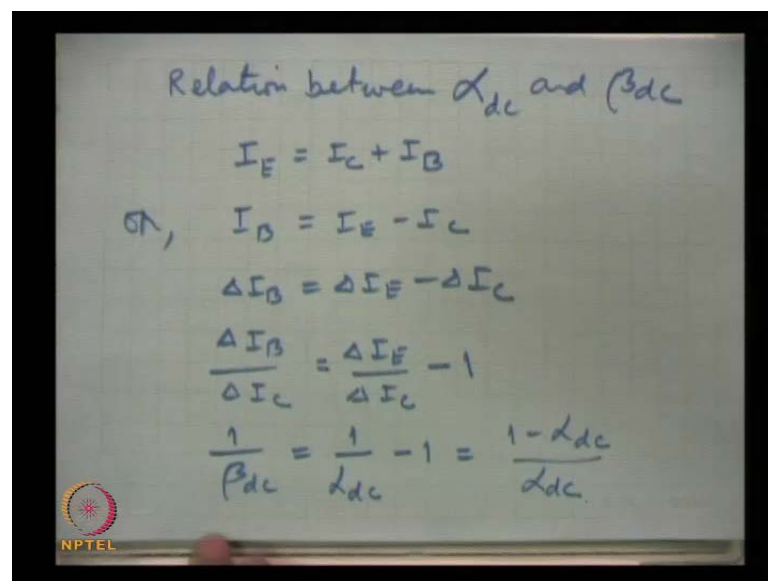 Relation between α_dc and β_dc
I_E = I_C + I_B
or, I_B = I_E - I_C
ΔI_B = ΔI_E - ΔI_C
ΔI_B / ΔI_C = ΔI_E / ΔI_C - 1
1 / β_dc = 1 / α_dc - 1 = (1 - α_dc) / α_dc
NPTEL